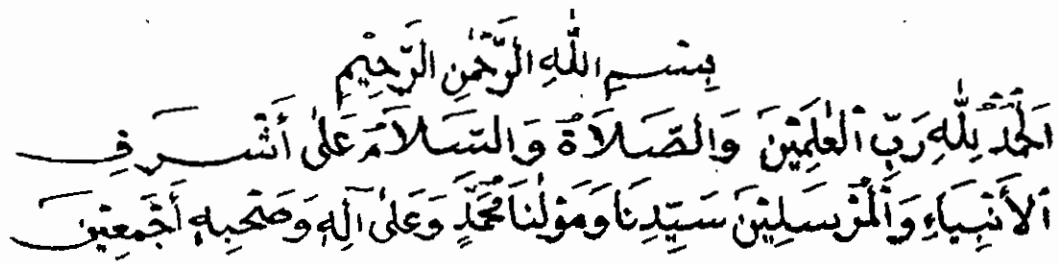 بِسْمِ اللّٰهِ الرَّحْمٰنِ الرَّحِيْمِ
اَلْحَمْدُ لِلّٰهِ رَبِّ الْعٰلَمِيْنَ وَالصَّلَاةُ وَالسَّلَامُ عَلٰى أَشْرَفِ
الْأَنْبِيَاءِ وَالْمُرْسَلِيْنَ سَيِّدِنَا وَمَوْلٰنَا مُحَمَّدٍ وَعَلٰى آلِهِ وَصَحْبِهِ أَجْمَعِيْنَ